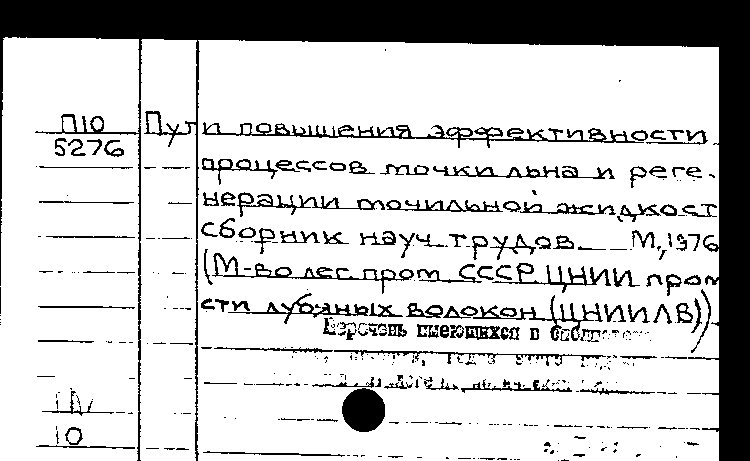 П10 Пути повышения эффективности
5276 процессов мочки льна и реге-
нерации мочильной жидкост
сборник науч. трудов. М, 1976
(М-во лег. пром. СССР ЦНИИ пром
сти лубяных волокон (ЦНИИЛВ))
Перечень имеющихся в
10